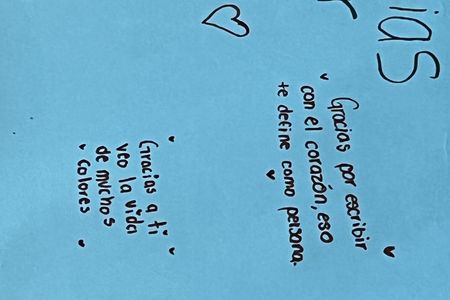 ias
r
Gracias por escribir
con el corazón, eso
te define como persona.
Gracias a ti
veo la vida
de muchos
colores